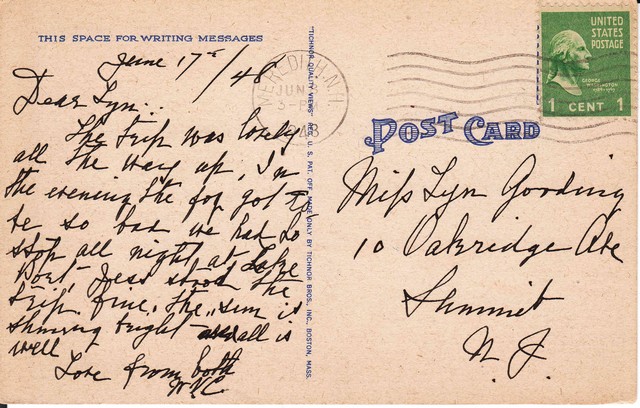 THIS SPACE FOR WRITING MESSAGES
June 17th/48
Dear Lyn..
The trip was lovely
all the way up, In
the evening the fog got to
be so bad we had to
stop all night at Lake
Port, Jess stood the
trip fine. The sun is
shining bright all is
well
Love from both
"TICHNOR QUALITY VIEWS" REG. U. S. PAT. OFF. MADE ONLY BY TICHNOR BROS., INC., BOSTON, MASS.
MEREDITH, N.H.
JUN
3-PM
48
UNITED
STATES
POSTAGE
GEORGE
WASHINGTON
1 CENT 1
POST CARD
Miss Lyn Gooding
10 Oakridge Ave
Summit
N. J.